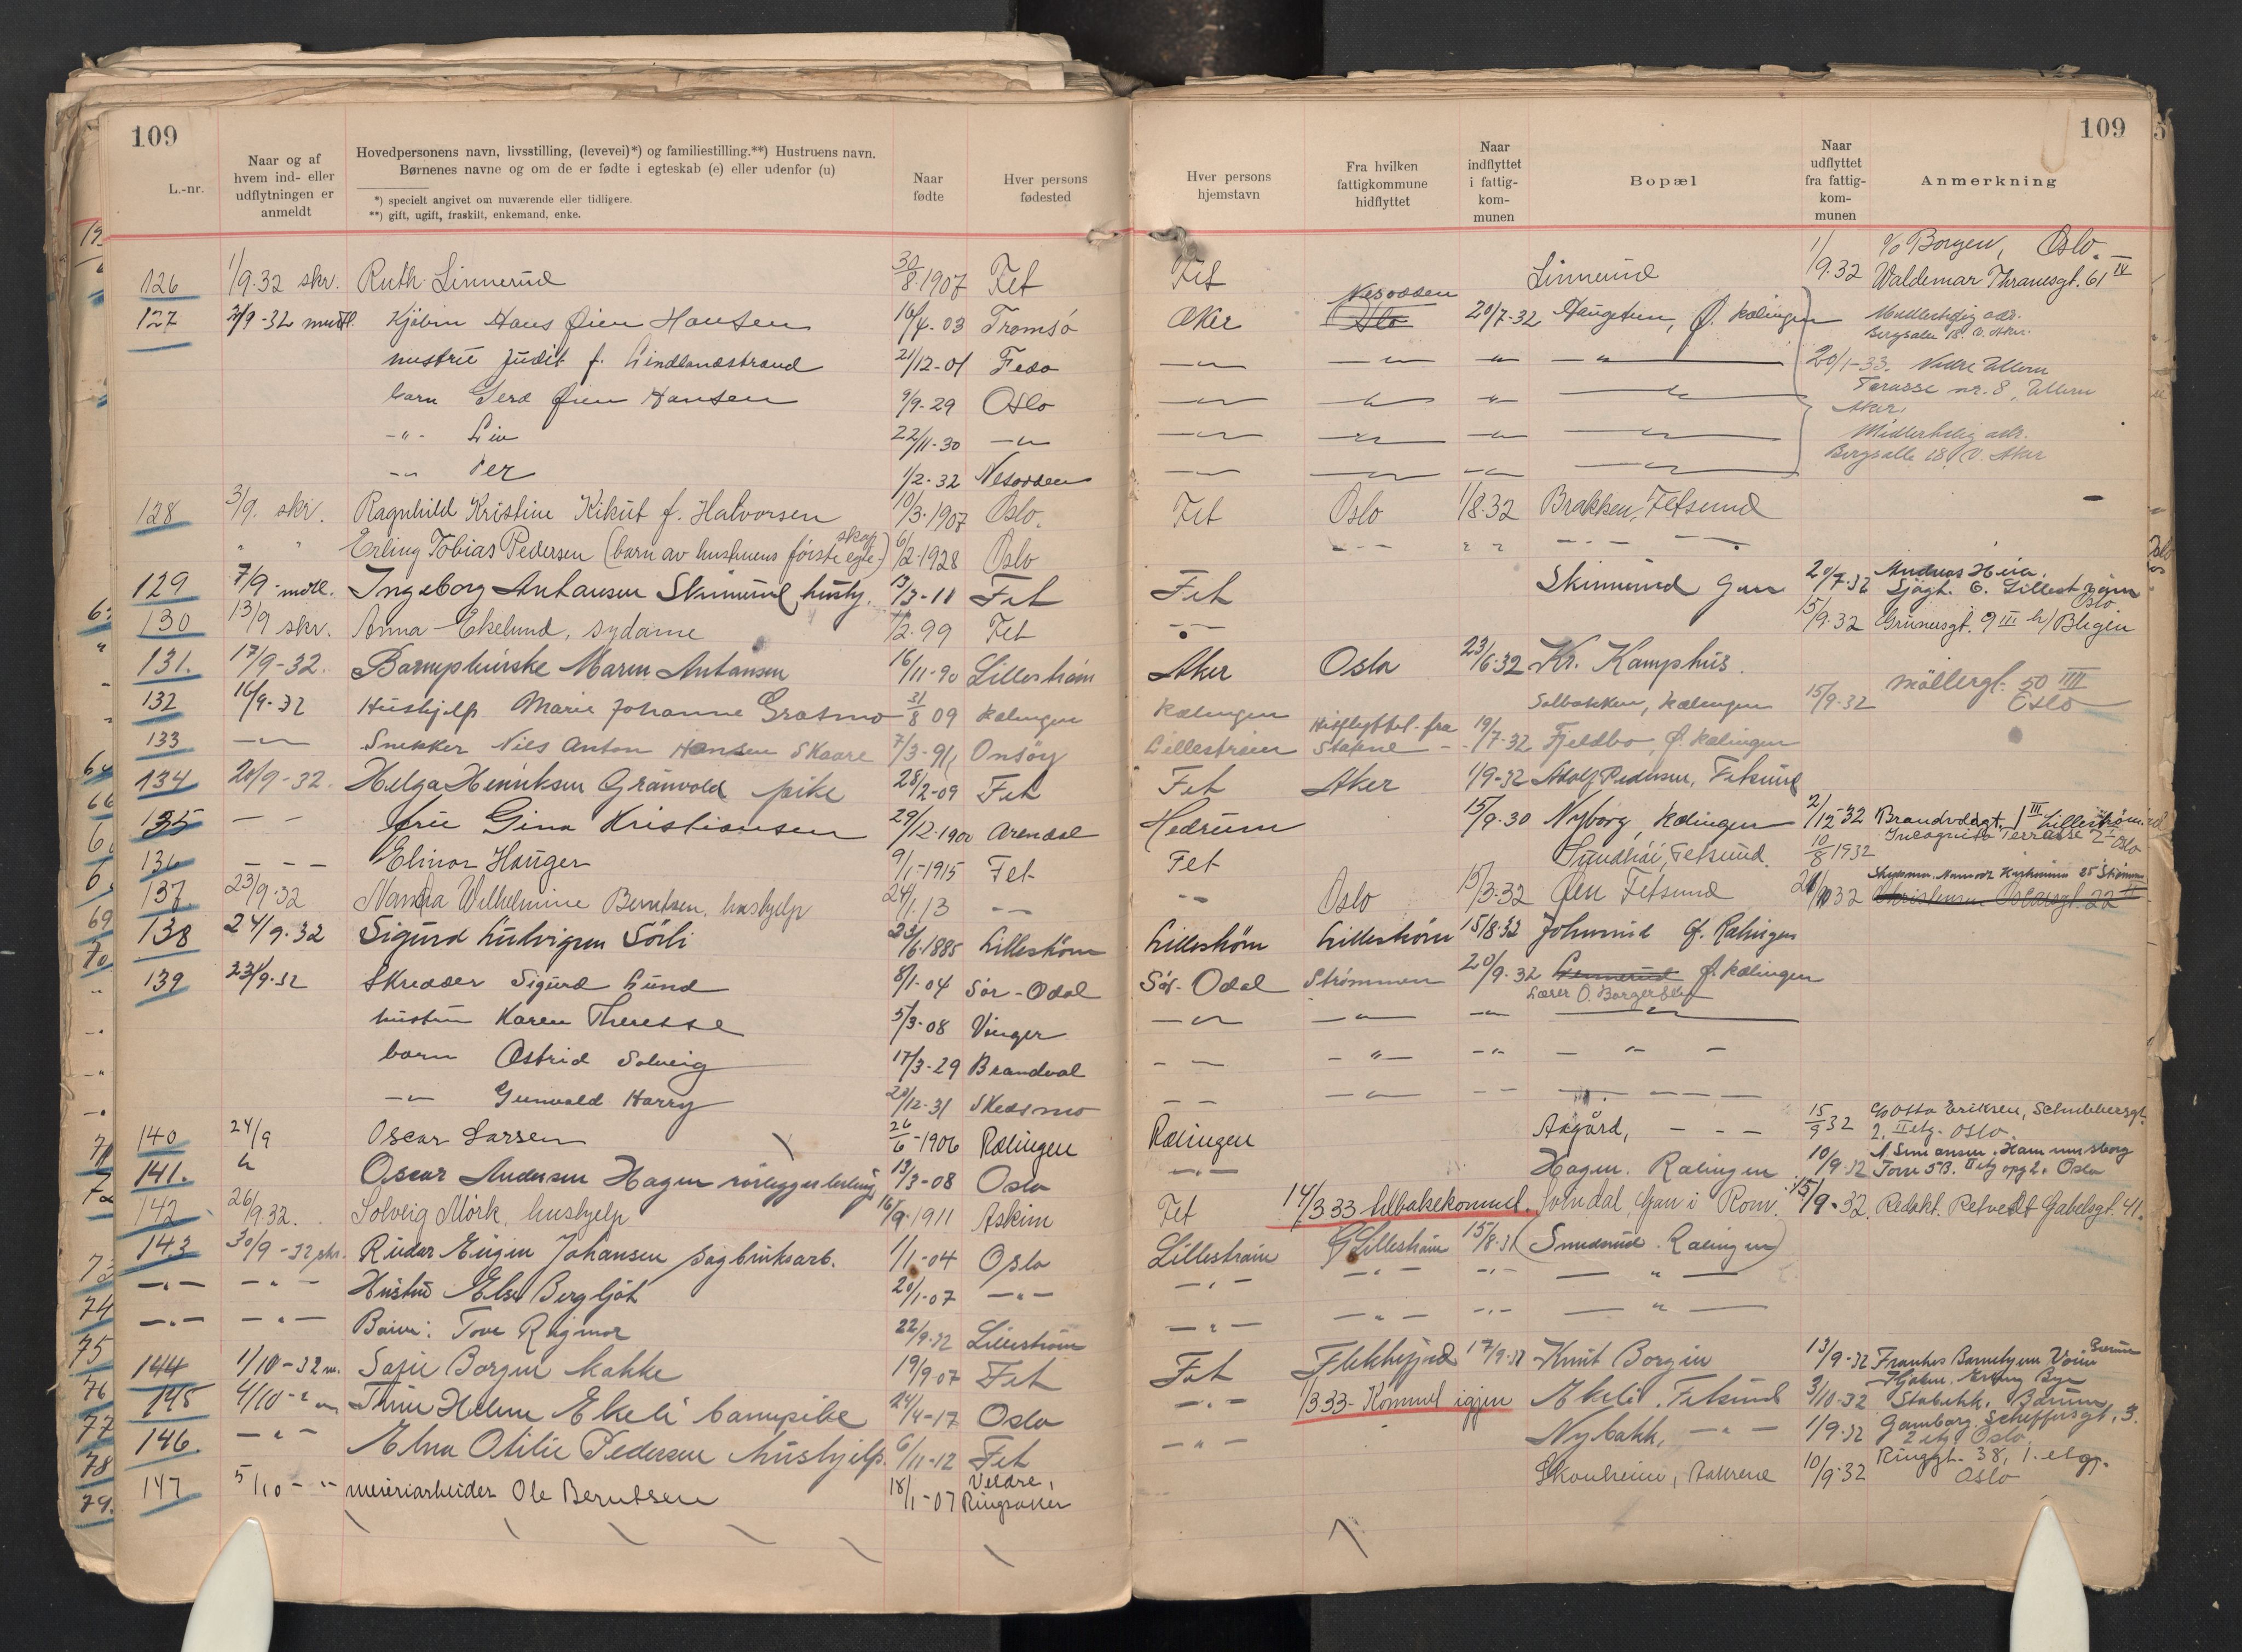 109
109
L.-nr.
Naar og af hvem ind- eller udflytningen er anmeldt
Hovedpersonens navn, livsstilling, (levevei)*) og familiestilling.**) Hustruens navn.
Børnenes navne og om de er fødte i egteskab (e) eller udenfor (u)
*) specielt angivet om nuværende eller tidligere.
**) gift, ugift, fraskilt, enkemand, enke.
Naar fødte
Hver persons fødested
Hver persons hjemstavn
Fra hvilken fattigkommune hidflyttet
Naar indflyttet i fattig-kom-munen
Bopæl
Naar udflyttet fra fattig-kom-munen
Anmerkning
126 1/9.32 skr. Ruth Linnerud 30/8.1907 Fet Fet Linnerud 1/9.32 c/o Borgen, Oslo.
Waldemar Thranesgt. 61 IV
127 2/9-32 mundtl. Hans Øien Hansen 16/4-03 Tromsø Aker Nesodden Oslo 20/7-32 Haugetun, Ø. Rælingen Midlertidig adr.
Bergsalle 18. V. Aker.
hustru Judit f. Lindlandstrand 21/12-01 Feda —"— —"— " —"— 20/1-33. Nedre Ullern
Terasse nr. 8, Ullern
Aker.
barn Gerd Øien Hansen 9/9-29 Oslo —"— —"— " —"—
-"- Liv 22/11-30 —"— —"— —"— —"— —"— Midlertidig adr.
Bergsalle 18 V. Aker
-"- Per 1/2-32 Nesodden —"— —"— —"— —"—
128 3/9. skr. Ragnhild Kristine Kikut f. Halvorsen 10/3-1907 Oslo. Fet Oslo 1/8.32 Brakken, Fetsund
" " Erling Tobias Pedersen (barn av hustruens første egte-skap) 6/2-1928 Oslo
129 7/9-mdl. Ingeborg Antansen Skinnerud, hushj. 13/3-11 Fet Fet Skinnerud Gan 20/7-32 Andreas Heia.
Lillestrøm
130 13/9 skr. Anna Ekelund, sydame 1/2.99 Fet —"— 15/9.32 Oslo
Grünersgt. 9 III h/ Bligen
131. 17/9-32. Barnepleierske Maren Antansen 16/11-90 Lillestrøm Aker Oslo 23/6-32 Kr. Kamphus.
132 16/9-32 Hushjelp Marie Johanne Grasmo 31/8 09 Rælingen Rælingen Solbakken, Rælingen 15/9-32 Møllergt. 50 IIII
Oslo
133 —"— Snekker Nils Anton Hansen Skaare 7/3-91 Onsøy Lillestrøm Hidflyttet fra 19/7-32 Fjeldbo, Ø. Rælingen
134 20/9-32. Helga Henriksen Grønvold pike 28/2-09 Fet Fet Aker 1/9-32 Adolf Pedersen, Fetsund
135 — — frue Gina Kristiansen 29/12-1900 Arendal Hedrum 15/9.30 Nyborg, Rælingen 2/12-32 Brandvoldgt. 1 III Lillestrøm
136 — — — Elinor Hauger 9/1-1915 Fet Fet Sundhøi, Fetsund. 10/8 1932 Incognito Terrasse 2 I Oslo
137 23/9.32 Nanda Wilhelmine Berntsen, hushjelp 24/1.13 —"— —"— Oslo 15/3-32 Øen Fetsund 32 Christensen Oscarsgt. 22 II
138 24/9.32 Sigurd Ludvigsen Sørli 23/6-1885 Lillestrøm Lillestrøm Lillestrøm 15/8-32 Johnsrud Ø. Rælingen
139 23/9-32 Skredder Sigurd Lund 8/1-04 Sør-Odal Sør-Odal Strømmen 20/9.32 Ø. Rælingen
Lærer O. Borgersen
hustru Karen Theresse 5/3-08 Vinger —"— —"— —"— —"—
barn Astrid Solveig 17/3-29 Brandval — — —"— —"— — " —
—"— Gunvald Harry 20/12-31 Skedsmo — — —"— — — —
140 24/9 Oscar Larsen 26/6-1906 Rælingen Rælingen Aagård, — — — 15/9 32 c/o Otto Eriksen, Schubbersgt.
2. IIetg. Oslo.
141. " Oscar Andersen Hagen rørleggerlærling 13/3-08 Oslo —"— Hagen. Rælingen 10/9-32 A. Simensen. Hammersborg
Torv 5B. II etg opg 2. Oslo
142 26/9.32. Solveig Mørk, hushjelp 16/9-1911 Askim Fet 14/3 33 tilbakekommet. Gan i Rom. 15/9-32. Redakt. Retvedt Gabelsgt. 41.
143 30/9-32 skr. Reidar Eugen Johansen sagbruksarb. 1/1-04 Oslo Lillestrøm Lillestrøm 15/8-31 (Smedsrud. Rælingen)
—"— —"— Hustru Else Bergljot 20/1-07 —"— —"— —"— —"— — " —
—"— —"— Barn: Tove Rigmor 22/9-32 Lillestrøm —"— —"— —"— — " —
144 1/10-32 m. Sofie Borgen kokke 19/9-07 Fet Fet Flekkefjord 17/9-32 Knut Borgen 13/9-32 Frankes Barnehjem
145 4/10-" m Helene Ekeli barnepike 24/4-17 Oslo —"— 1/3 33- Kommet igjen Ekeli. Fetsund 3/10-32 Stabekk. Bærum
146. —"— Elna Otilie Pedersen hushjelp. 6/11-12 Fet —"— Nybakk, —"— 1/9.32 Gamborg. Scheffersgt. 3.
2 etg Oslo
147 5/10-"- meieriarbeider Ole Berntsen 18/1-07 Veldre, Ringsaker Skonheim, Aakrene 10/9-32 Ringgt. 38, 1. etg.
Oslo